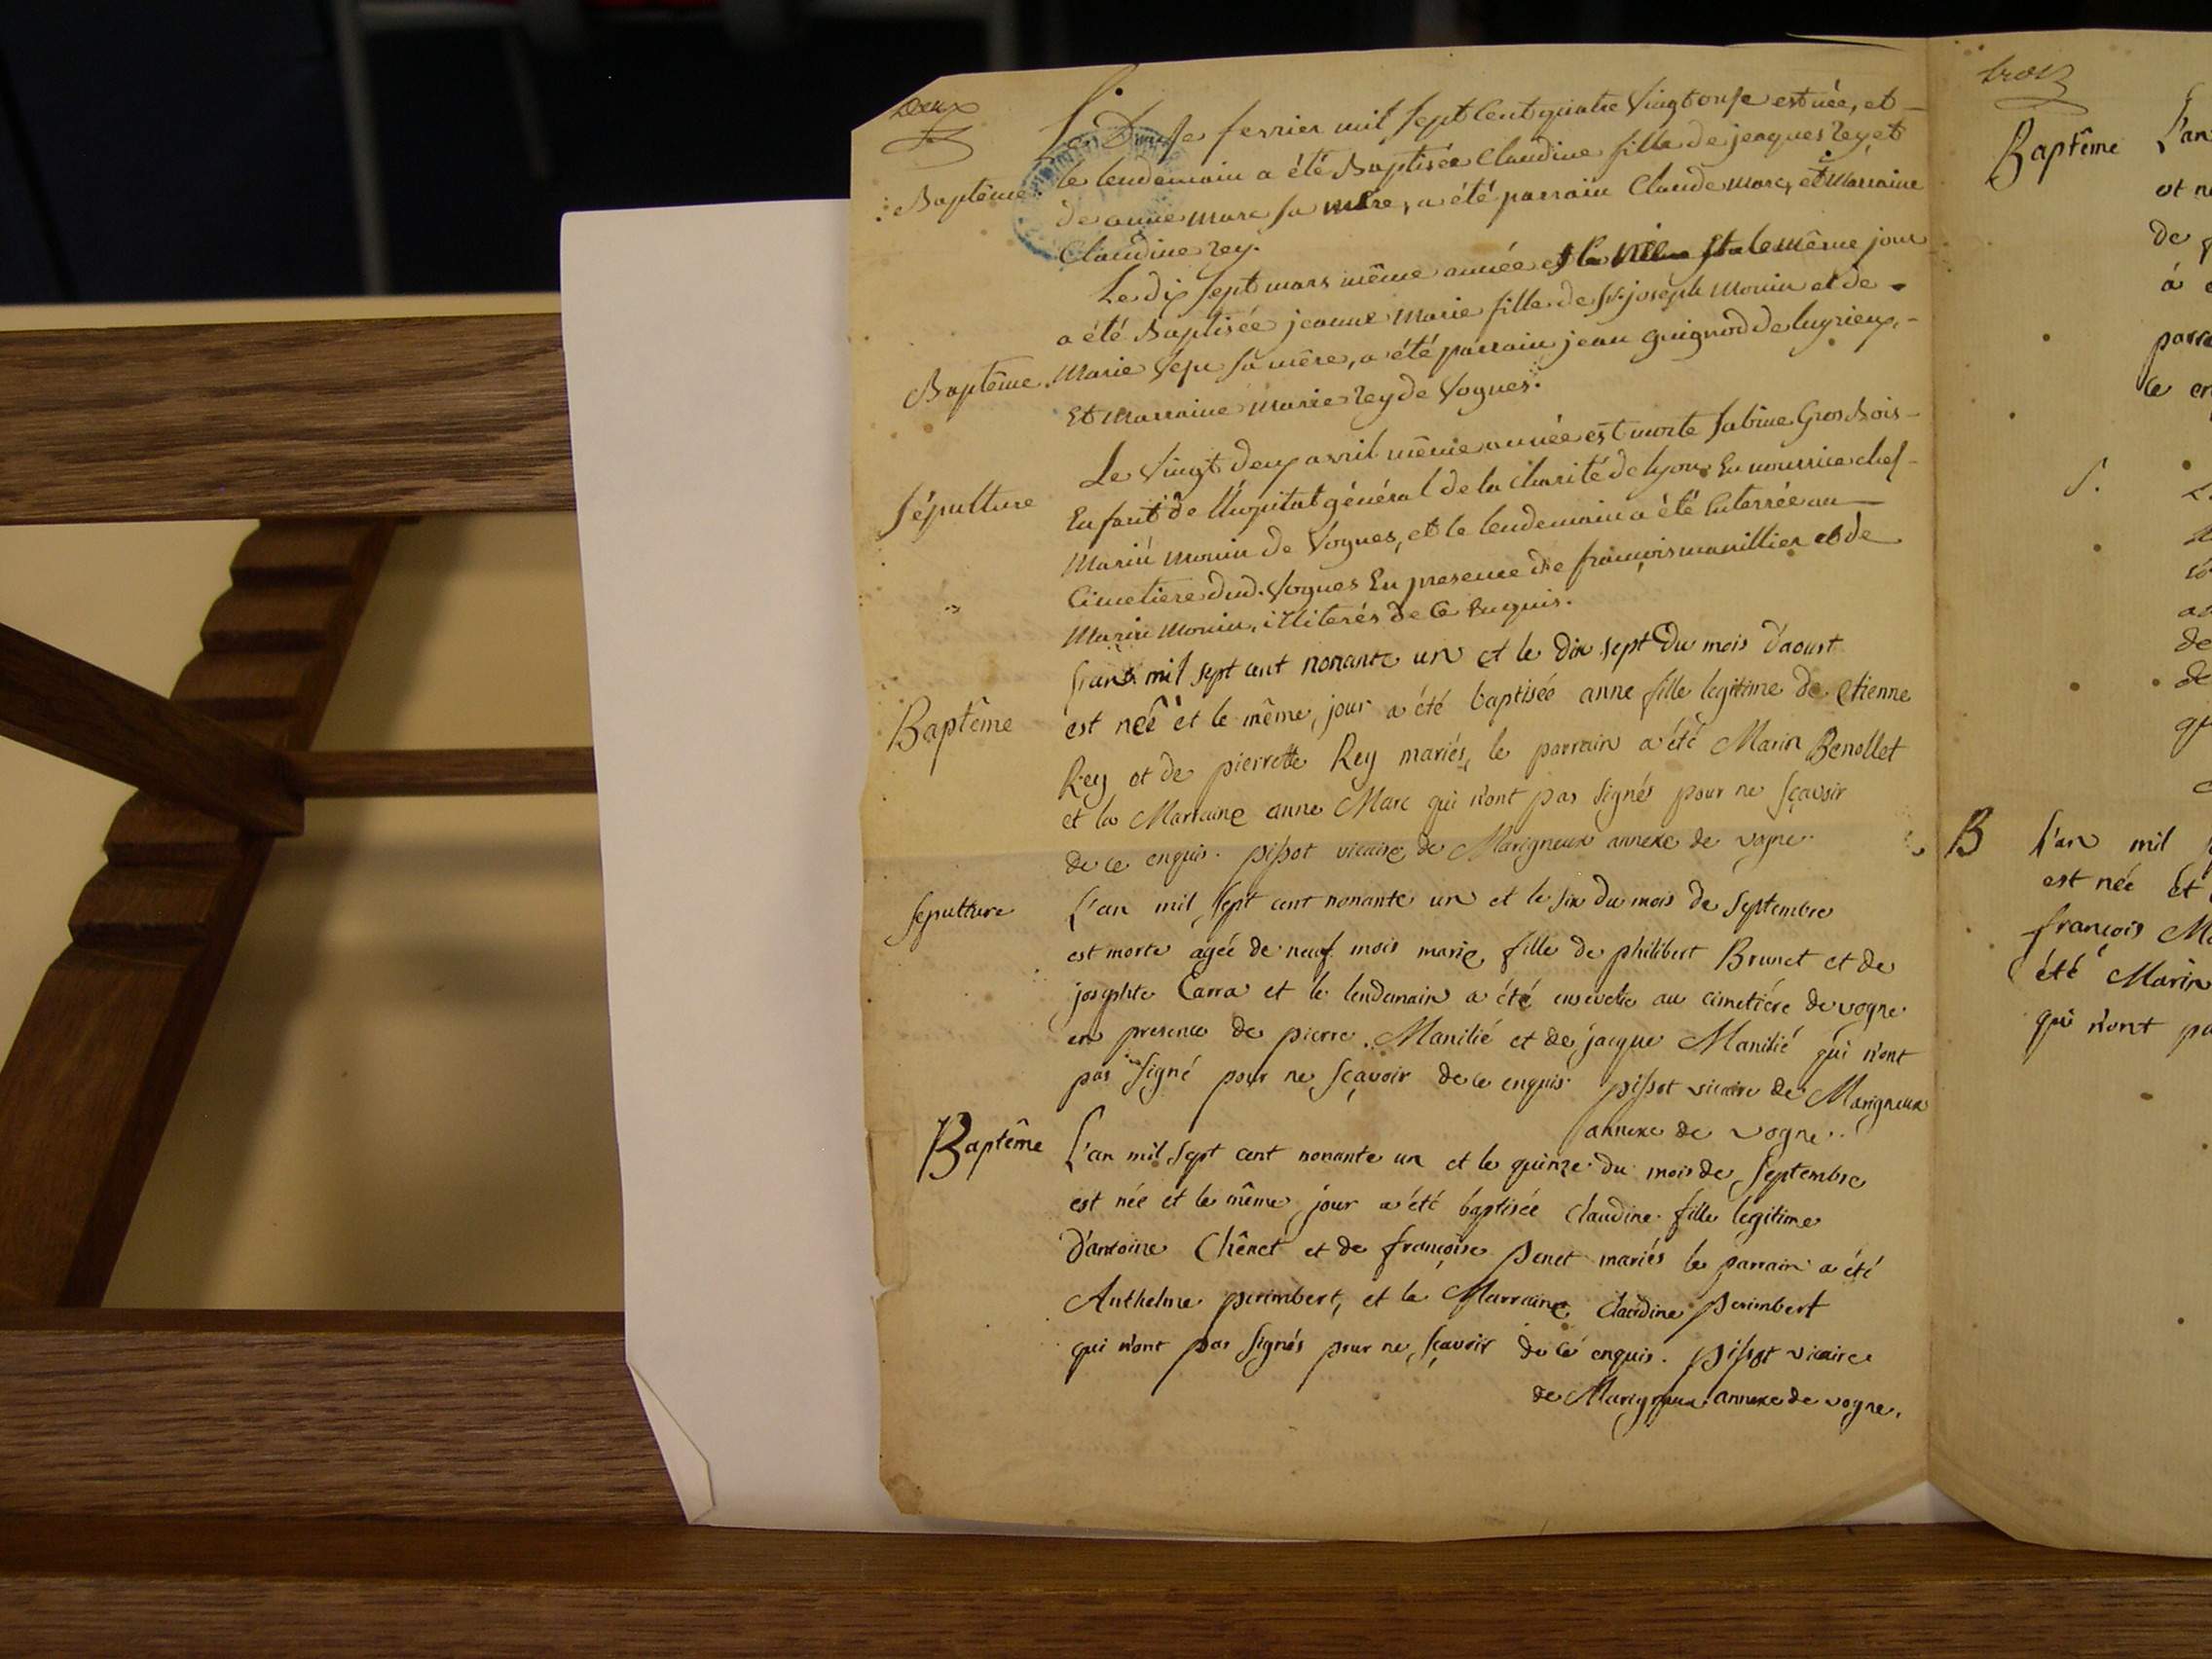 Deux
Le Douse fevrier mil sept Cent quatre Vingt onse est née, et
Baptême le lendemain a été Baptisée Claudine fille de jeaques Rey, et
de anne marc sa mere, a été parrain Claude marc, et Marraine
Claudine rey.
Le dix sept mars même année le même jour
a été Baptisée jeanne Marie fille de Sr. joseph Monin et de
Baptême Marie sa mère, a été parrain jean guignod de lugrieux,
Et Marraine Marie Rey de Vognes.
Le Vingt deux avril même année est morte Sabine Gros Bois
Sépulture Enfant de l'hopital général de la Charité de Lyon En nourrice chés
Marin monin de Vognes, et le lendemain a été Enterrée au
Cimetiere dud. Vognes En presence de françois manillier et de
Marin Monin, illiterés de Ce Enquis.
mil sept cent nonante un et le dix sept Du mois d'aoust
Baptême est née et le même jour a été baptisée anne fille legitime de etienne
Rey et de pierrette Rey mariés, le parrain a été Marin Benollet
et la Marraine anne Marc qui n'ont pas signés pour ne sçavoir
de ce enquis. pissot vicaire de Marigneux annexe de vogne.
sepulture L'an mil sept cent nonante un et le six du mois de septembre
est morte agée de neuf mois marie fille de philibert Brunet et de
josephte Carra et le lendemain a été ensevelie au cimetiére de vogne
en presence de pierre Manilié et de jacque Manilié qui n'ont
pas signé pour ne sçavoir de ce enquis. pissot vicaire de Marigneux
annexe de vogne.
Baptême L'an mil sept cent nonante un et le quinze du mois de septembre
est née et le même jour a été baptisée claudine fille legitime
d'antoine Chênet et de françoise penet mariés le parrain a été
Anthelme perimbert, et la Marraine claudine perimbert
qui n'ont pas signés pour ne sçavoir de ce enquis. pissot vicaire
de Marigneux annexe de vogne.
trois
Baptême L'an
est n
de
à
parra
ce en
S.
de
de
B L'an mil
est née et
françois Ma
été Marin
qui n'ont pa